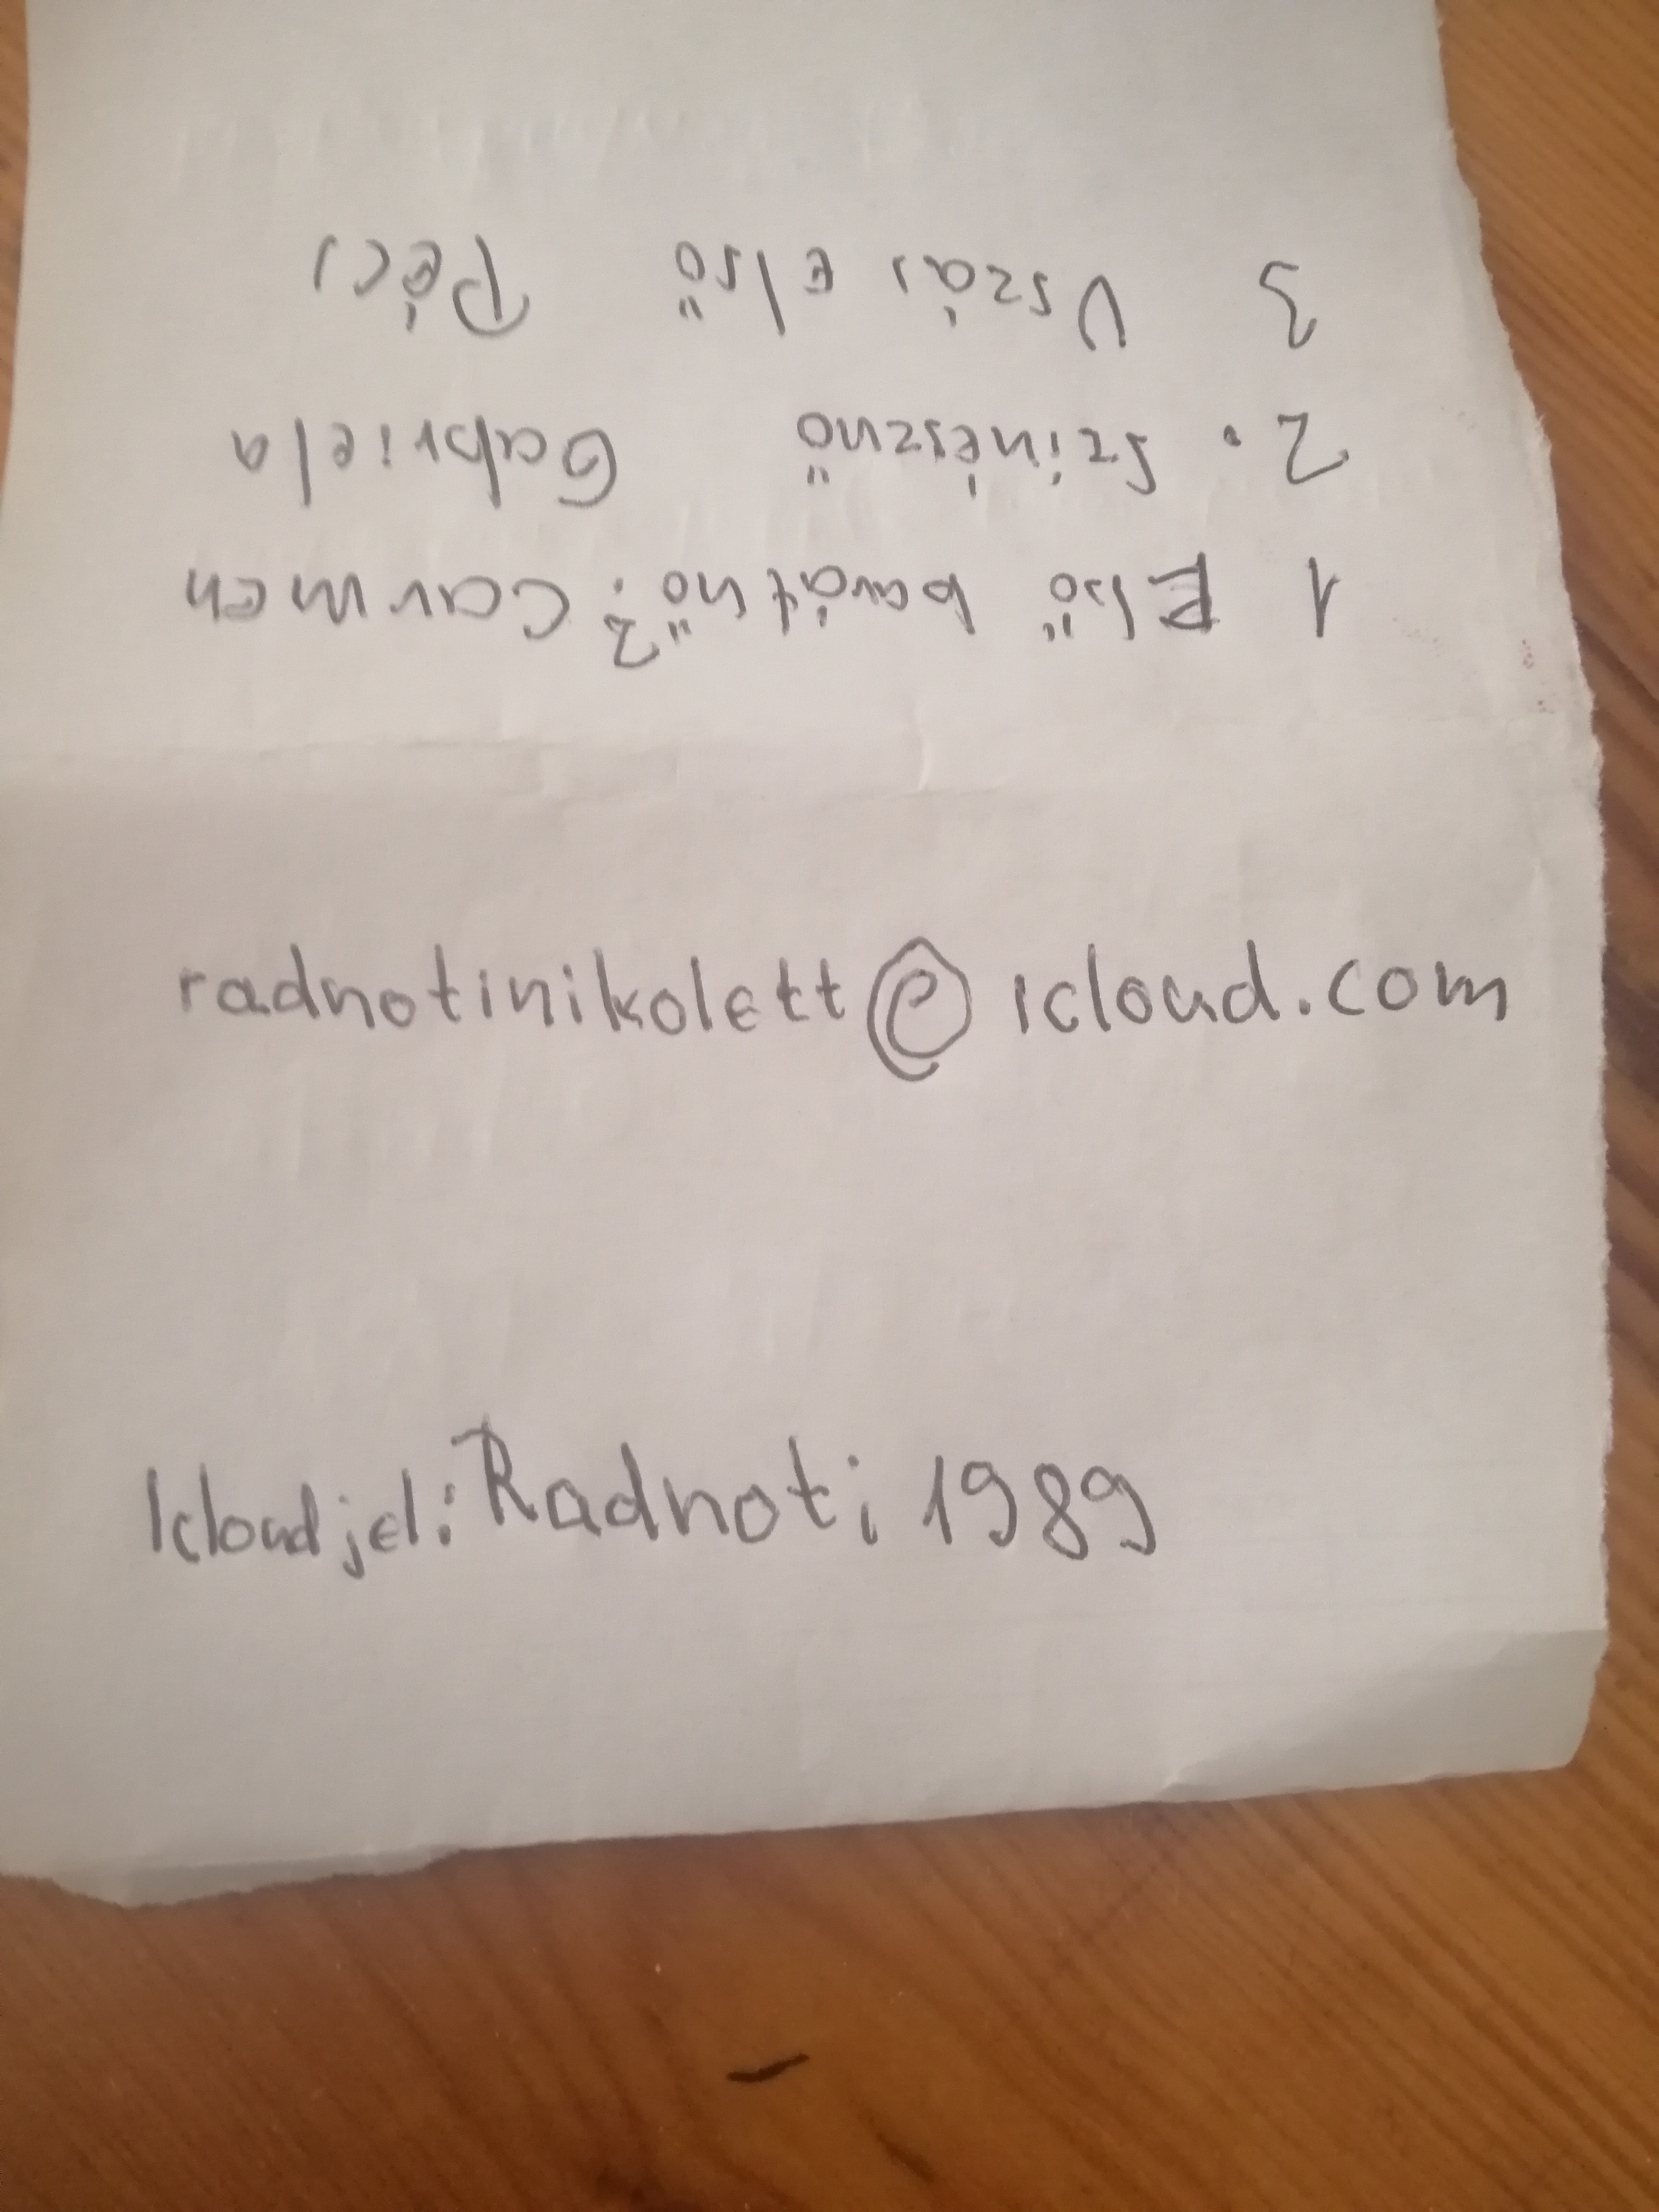 1 Első barátnő? Carmen
2. Színésznő Gabriela
3 Uszás Első Pécs
radnotinikolett@icloud.com
Icloud jel: Radnoti 1989